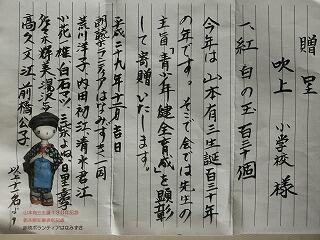 贈呈
吹上小学校様
一、紅白の玉百三十個
今年は山本有三生誕百三十年
の年です。そこで会では先生の
主旨「青少年健全育成」を顕彰
して寄贈いたします。
平成二十九年十一月吉日
朗読ボランティアはなみずき一同
荒川洋子 内田初江 清水君江
小花 雄 白石マツ 三柴よね 日里
佐々木輝美 湯沢
高久文江 前橋公子
以上十一名より
山本有三生誕130年記念
朗読ボランティアはなみずき